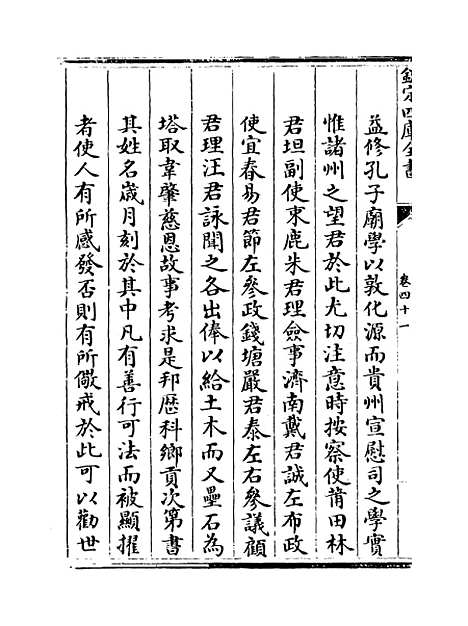 欽定四庫全書
卷四十一
益修孔子廟學以敦化源而貴州宣慰司之學實
惟諸州之望君於此尤切注意時按察使莆田林
君坦副使束鹿朱君理僉事濟南戴君誠左布政
使宜春易君節左參政錢塘嚴君泰左右參議顧
君理汪君詠聞之各出俸以給土木而又壘石為
塔取韋肇慈恩故事考求是邦歴科鄉貢次第書
其姓名歲月刻於其中凡有善行可法而被顯擢
者使人有所感發否則有所儆戒於此可以勸世